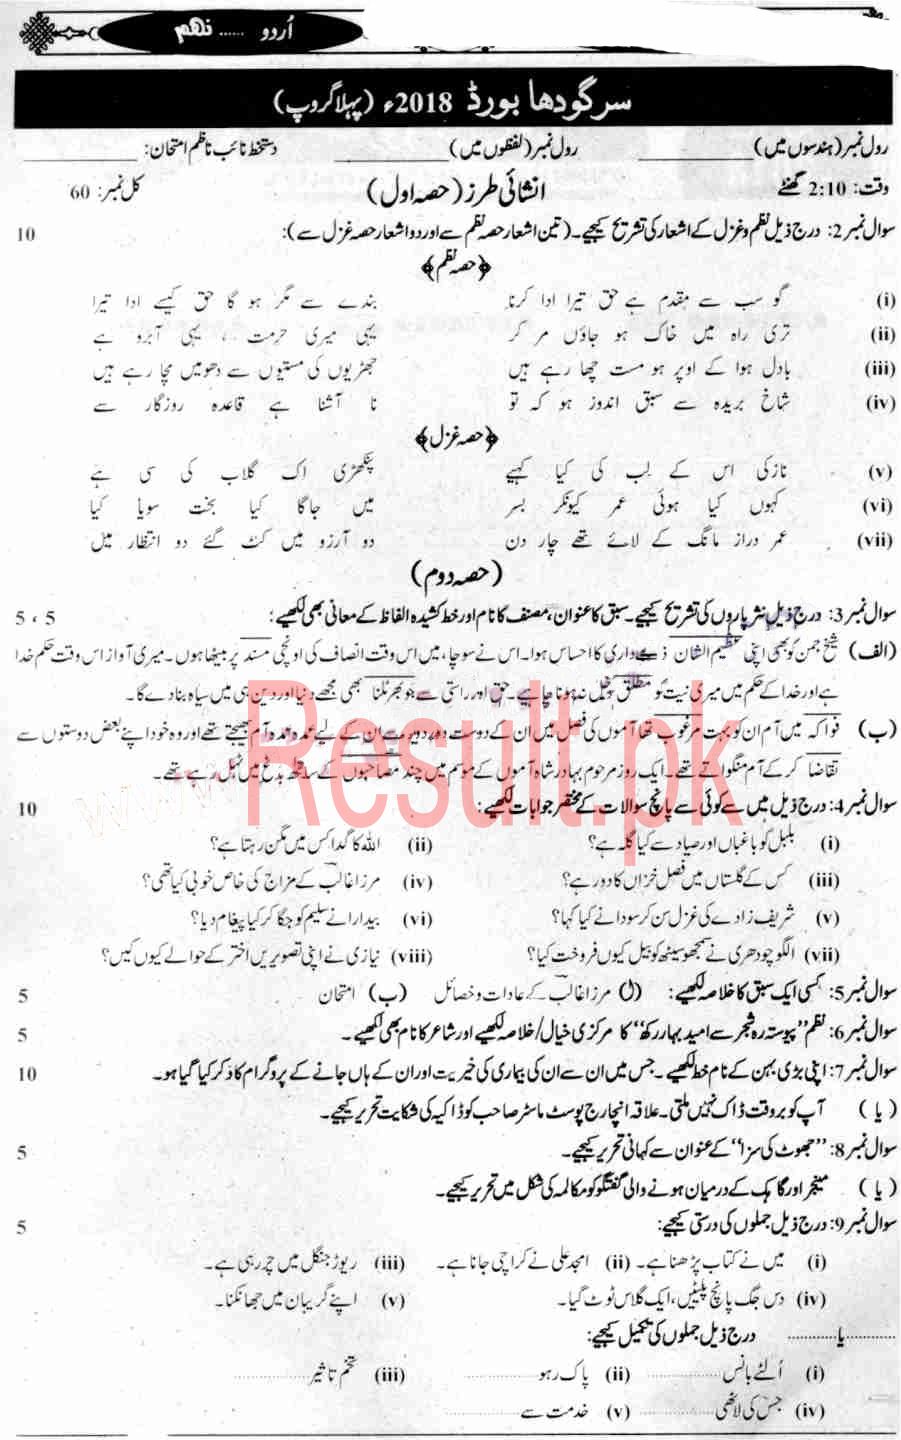 اُردو ...... نہم
سرگودھا بورڈ 2018ء (پہلا گروپ)
رول نمبر (ہندسوں میں) ____________ رول نمبر (لفظوں میں) ____________ دستخط نائب ناظم امتحان: ____________
وقت: 2:10 گھنٹے انشائی طرز (حصہ اول) کل نمبر: 60
سوال نمبر2: درج ذیل نظم و غزل کے اشعار کی تشریح کیجیے۔ (تین اشعار حصہ نظم سے اور دو اشعار حصہ غزل سے): 10
﴿حصہ نظم﴾
(i) گو سب سے مقدم ہے حق تیرا ادا کرنا بندے سے مگر ہو گا حق کیسے ادا تیرا
(ii) تری راہ میں خاک ہو جاؤں مر کر یہی میری حرمت ، یہی آبرو ہے
(iii) بادل ہوا کے اوپر ہو مست چھا رہے ہیں جھڑیوں کی مستیوں سے دھومیں مچا رہے ہیں
(iv) شاخ بریدہ سے سبق اندوز ہو کہ تو نا آشنا ہے قاعدہ روزگار سے
﴿حصہ غزل﴾
(v) نازکی اس کے لب کی کیا کہیے پنکھڑی اک گلاب کی سی ہے
(vi) کہوں کیا ہوئی عمر کیونکر بسر میں جاگا کیا بخت سویا کیا
(vii) عمر دراز مانگ کے لائے تھے چار دن دو آرزو میں کٹ گئے دو انتظار میں
(حصہ دوم)
سوال نمبر3: درج ذیل نثر پاروں کی تشریح کیجیے۔ سبق کا عنوان، مصنف کا نام اور خط کشیدہ الفاظ کے معانی بھی لکھیے: 5 ، 5
(الف) شیخ جمن کو بھی اپنی عظیم الشان ذمے داری کا احساس ہوا۔ اس نے سوچا، میں اس وقت انصاف کی اونچی مسند پر بیٹھا ہوں۔ میری آواز اس وقت حکم خدا
ہے اور خدا کے حکم میں میری نیت کو مطلق دخل نہ ہونا چاہیے۔ حق اور راستی سے جو بھر ٹلنا بھی مجھے دنیا اور دین ہی میں سیاہ بنا دے گا۔
(ب) فواکہ میں آم ان کو بہت مرغوب تھا آموں کی فصل میں ان کے دوست دور دور سے ان کے لیے عمدہ عمدہ آم بھیجتے تھے اور وہ خود اپنے بعض دوستوں سے
تقاضا کر کے آم منگواتے تھے۔ ایک روز مرحوم بہادر شاہ آموں کے موسم میں چند مصاحبوں کے ساتھ باغ میں ٹہل رہے تھے۔
سوال نمبر4: درج ذیل میں سے کوئی سے پانچ سوالات کے مختصر جوابات لکھیے: 10
(i) بلبل کو باغباں اور صیاد سے کیا گلہ ہے؟ (ii) اللہ کا گدا کس میں مگن رہتا ہے؟
(iii) کس کے گلستاں میں فصل خزاں کا دور ہے؟ (iv) مرزا غالب کے مزاج کی خاص خوبی کیا تھی؟
(v) شریف زادے کی غزل سن کر سودا نے کیا کہا؟ (vi) بیدارا نے سلیم کو جگا کر کیا پیغام دیا؟
(vii) الگو چودھری نے سمجھو سیٹھ کو بیل کیوں فروخت کیا؟ (viii) نیازی نے اپنی تصویریں اختر کے حوالے کیوں کیں؟
سوال نمبر5: کسی ایک سبق کا خلاصہ لکھیے: (ا) مرزا غالب کے عادات و خصائل (ب) امتحان 5
سوال نمبر6: نظم "پیوستہ رہ شجر سے امید بہار رکھ" کا مرکزی خیال/خلاصہ لکھیے اور شاعر کا نام بھی لکھیے۔ 5
سوال نمبر7: اپنی بڑی بہن کے نام خط لکھیے۔ جس میں ان سے ان کی بیماری کی خیریت اور ان کے ہاں جانے کے پروگرام کا ذکر کیا گیا ہو۔ 10
(یا) آپ کو بروقت ڈاک نہیں ملتی۔ علاقہ انچارج پوسٹ ماسٹر صاحب کو ڈاکیہ کی شکایت تحریر کیجیے۔
سوال نمبر8: "جھوٹ کی سزا" کے عنوان سے کہانی تحریر کیجیے۔ 5
(یا) مینجر اور گاہک کے درمیان ہونے والی گفتگو کو مکالمہ کی شکل میں تحریر کیجیے۔
سوال نمبر9: درج ذیل جملوں کی درستی کیجیے: 5
(i) میں نے کتاب پڑھنا ہے۔ (ii) امجد علی نے کراچی جانا ہے۔ (iii) ریوڑ جنگل میں چر رہی ہے۔
(iv) دس جگ پانچ پلیٹیں، ایک گلاس ٹوٹ گیا۔ (v) اپنے گریبان میں جھانکنا۔
............یا............ درج ذیل جملوں کی تکمیل کیجیے:
(i) اُلٹے بانس ............ (ii) پاک رہو ............ (iii) تخم تاثیر ............
(iv) جس کی لاٹھی ............ (v) خدمت سے ............
Result.pk